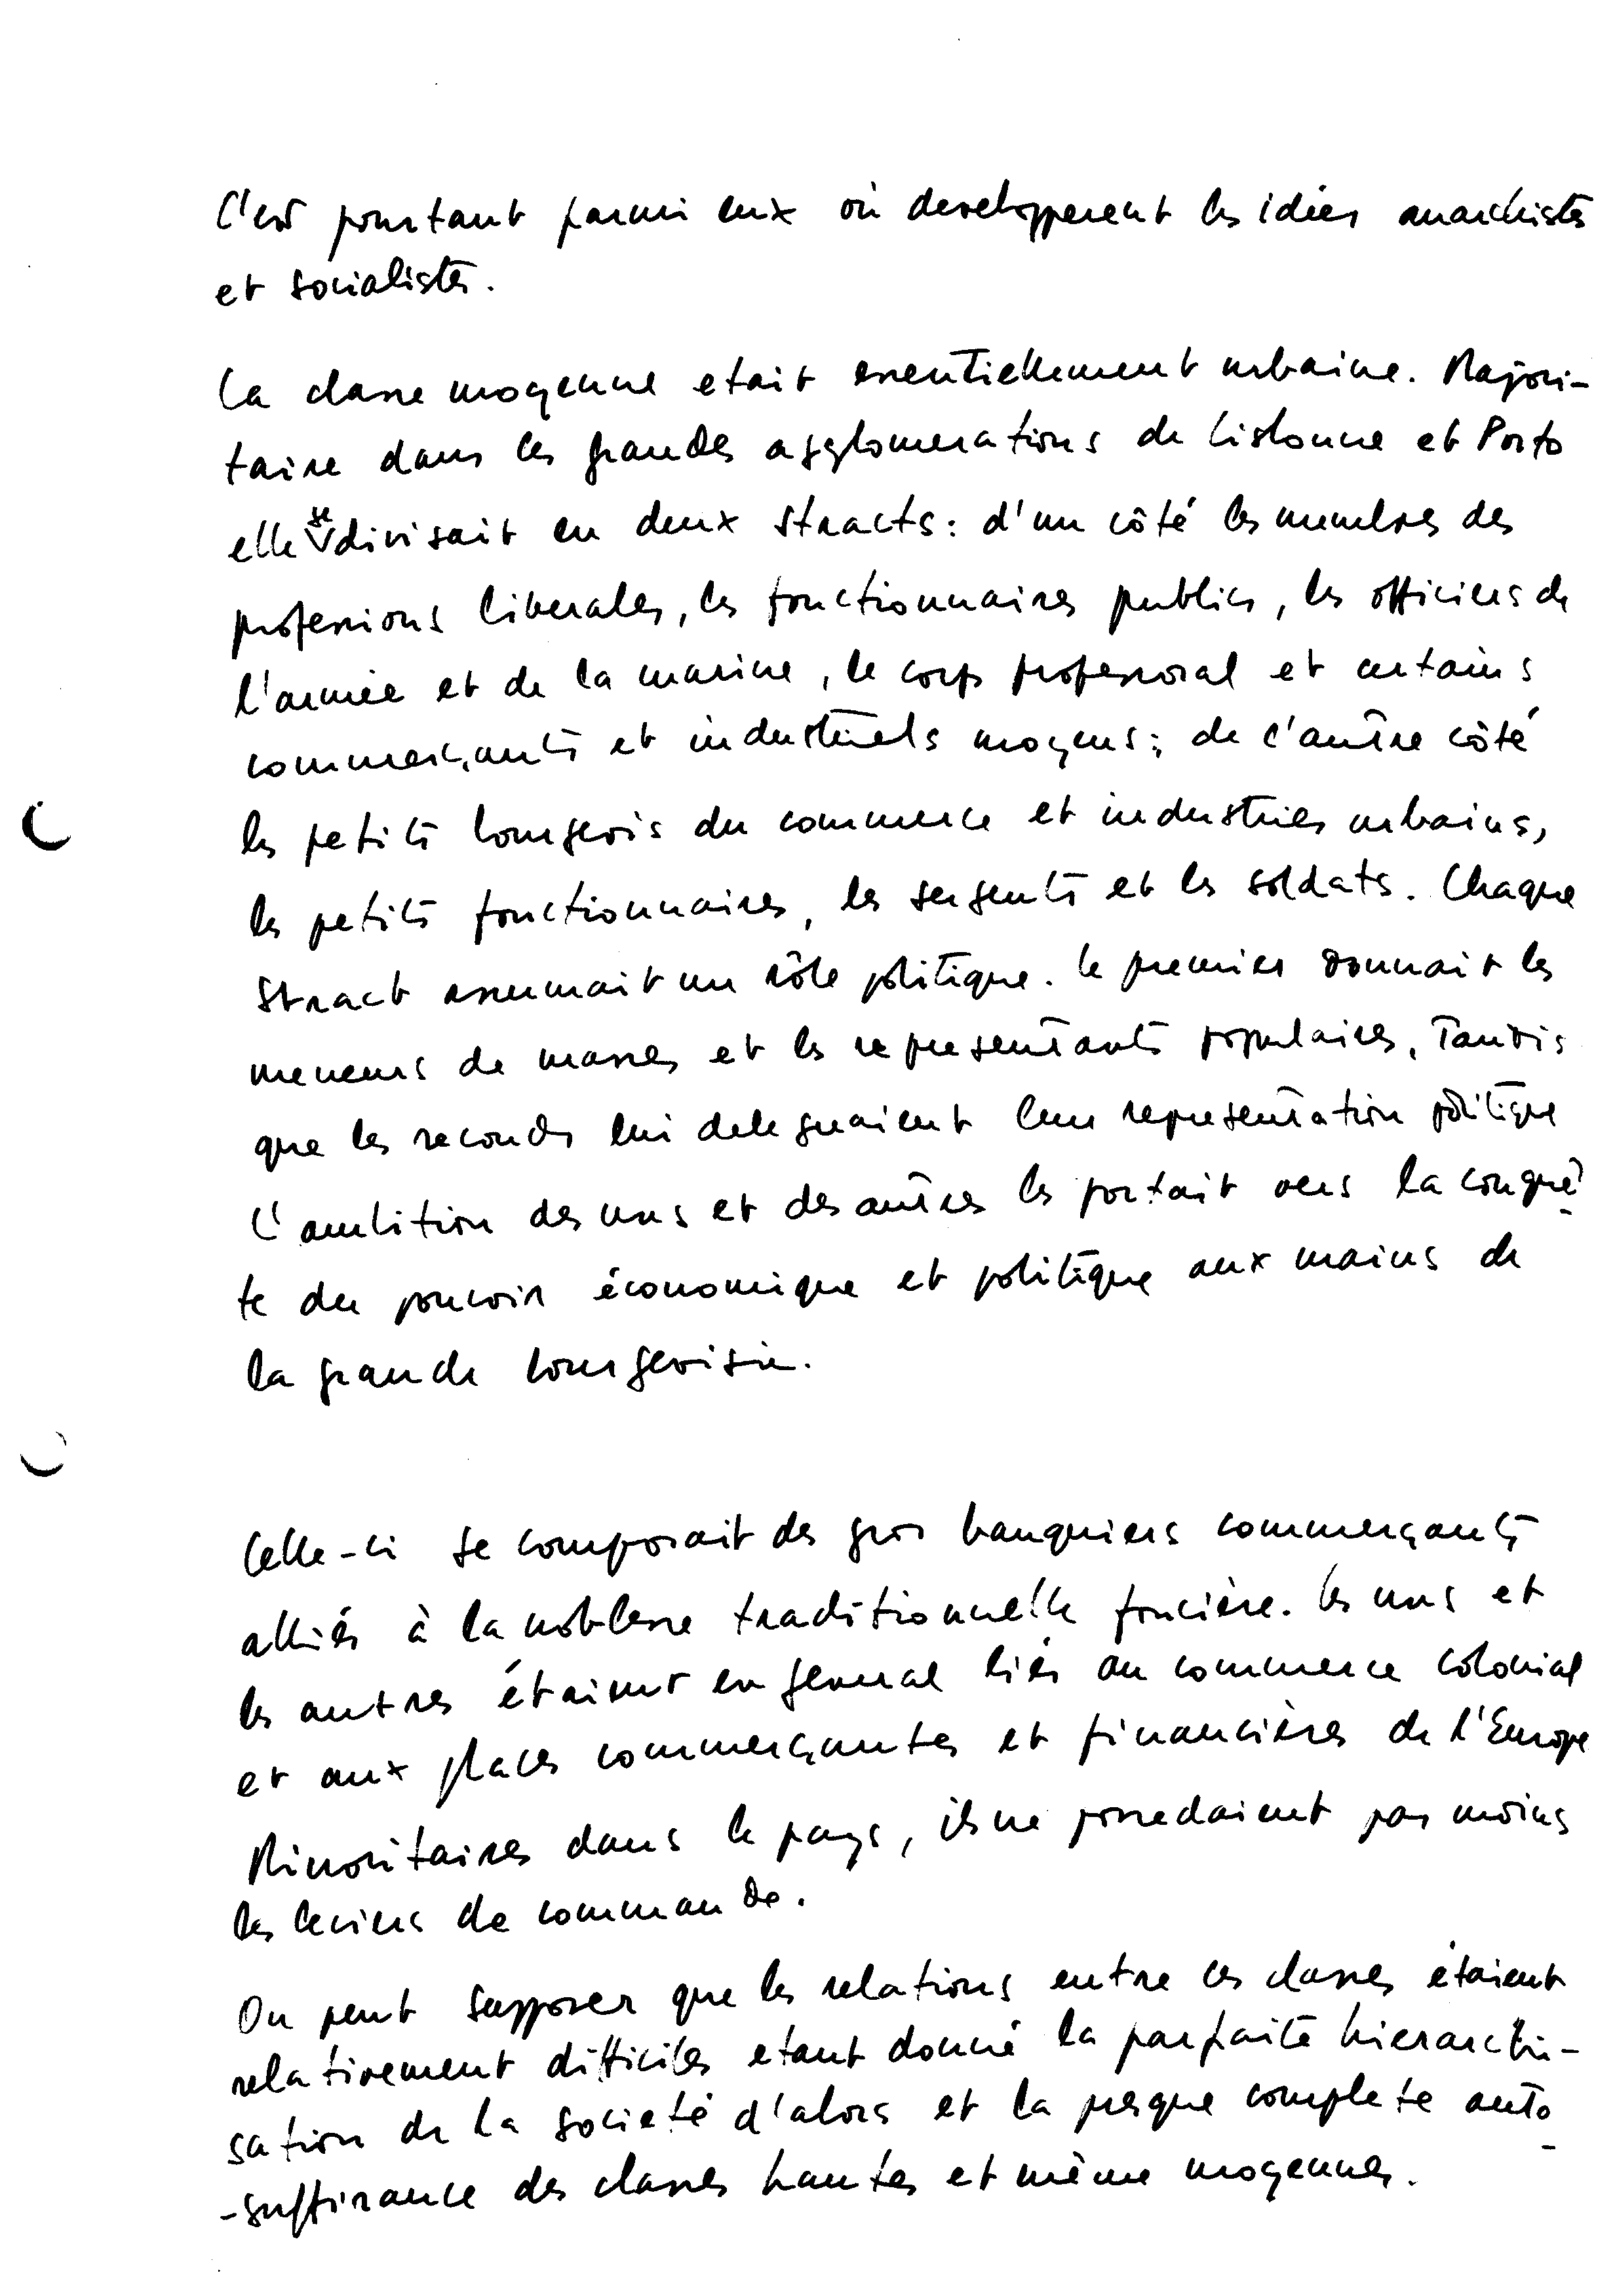 C'est pourtant parmi eux où developperent les idées anarchistes
et socialistes.
La classe moyenne etait essentiellement urbaine. Majori-
taire dans les grandes agglomerations de Lisbonne et Porto
elle se divisait en deux stracts: d'un côté les membres des
professions liberales, les fonctionnaires publics, les officiers de
l'armée et de la marine, le corps professoral et certains
commerçants et industriels moyens; de l'autre côté
les petits bourgeois du commerce et industries urbains,
les petits fonctionnaires, les sergents et les soldats. Chaque
stract assumait un rôle politique. Le premier donnait les
meneurs de masses et les representants populaires, tandis
que les seconds lui deleguaient leur representation politique
L'ambition des uns et des autres les portait vers la conquê-
te du pouvoir économique et politique aux mains de
la grande bourgeoisie.
Celle-ci se composait des gros banquiers commerçants
alliés à la noblesse traditionnelle foncière. Les uns et
les autres étaient en general liés au commerce colonial
et aux places commerçantes et financières de l'Europe
Minoritaires dans le pays, ils ne possedaient pas moins
les leviers de commande.
On peut supposer que les relations entre ces classes étaient
relativement difficiles etant donné la parfaite hierarchi-
sation de la societé d'alors et la presque complete auto
-suffisance des classes hautes et même moyennes.